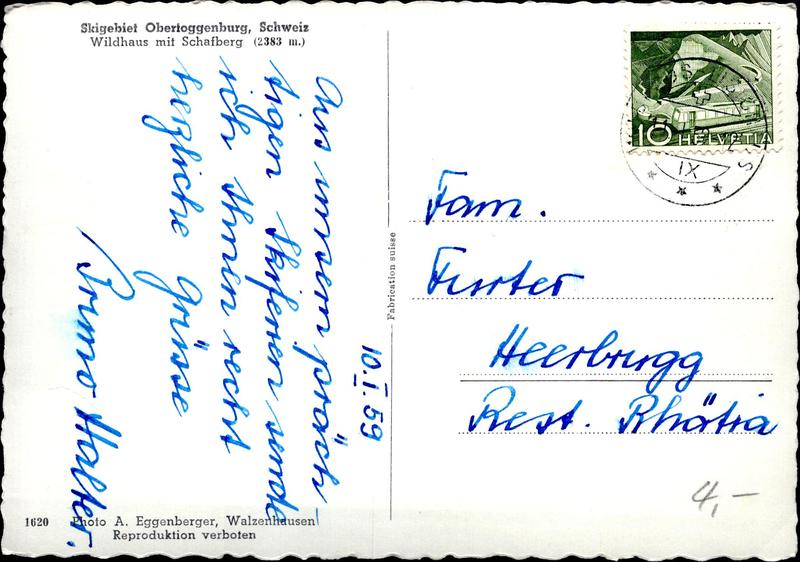 Skigebiet Obertoggenburg, Schweiz
Wildhaus mit Schafberg (2383 m.)
10.I.59
Aus unsern präch-
tigen Skiferien sende
ich Ihnen recht
herzliche Grüsse
Bruno Halter.
1620 Photo A. Eggenberger, Walzenhausen
Reproduktion verboten
Fabrication suisse
10 HELVETIA
IX
Fam.
Furter
Heerbrugg
Rest. Rhätia
4,-